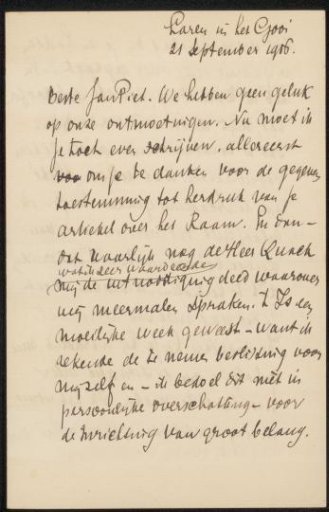 Laren in het Gooi
21 September 1906.
Beste Jan Piet. We hebben geen geluk
op onze ontmoetingen. Nu moet ik
je toch even schrijven, allereerst
om je te danken voor de gegeven
toestemming tot herdruk van je
artikel over het Raam. En dan
dat waarlijk nog de Heer Quack
wat ik zeer waardeerde
mij de uitnoodiging deed waarover
wij meermalen spraken. 't Is een
moeilijke week geweest - want ik
rekende de te nemen beslissing voor
mijzelf en - ik bedoel dit niet in
persoonlijke overschatting - voor
de Inrichting van groot belang.